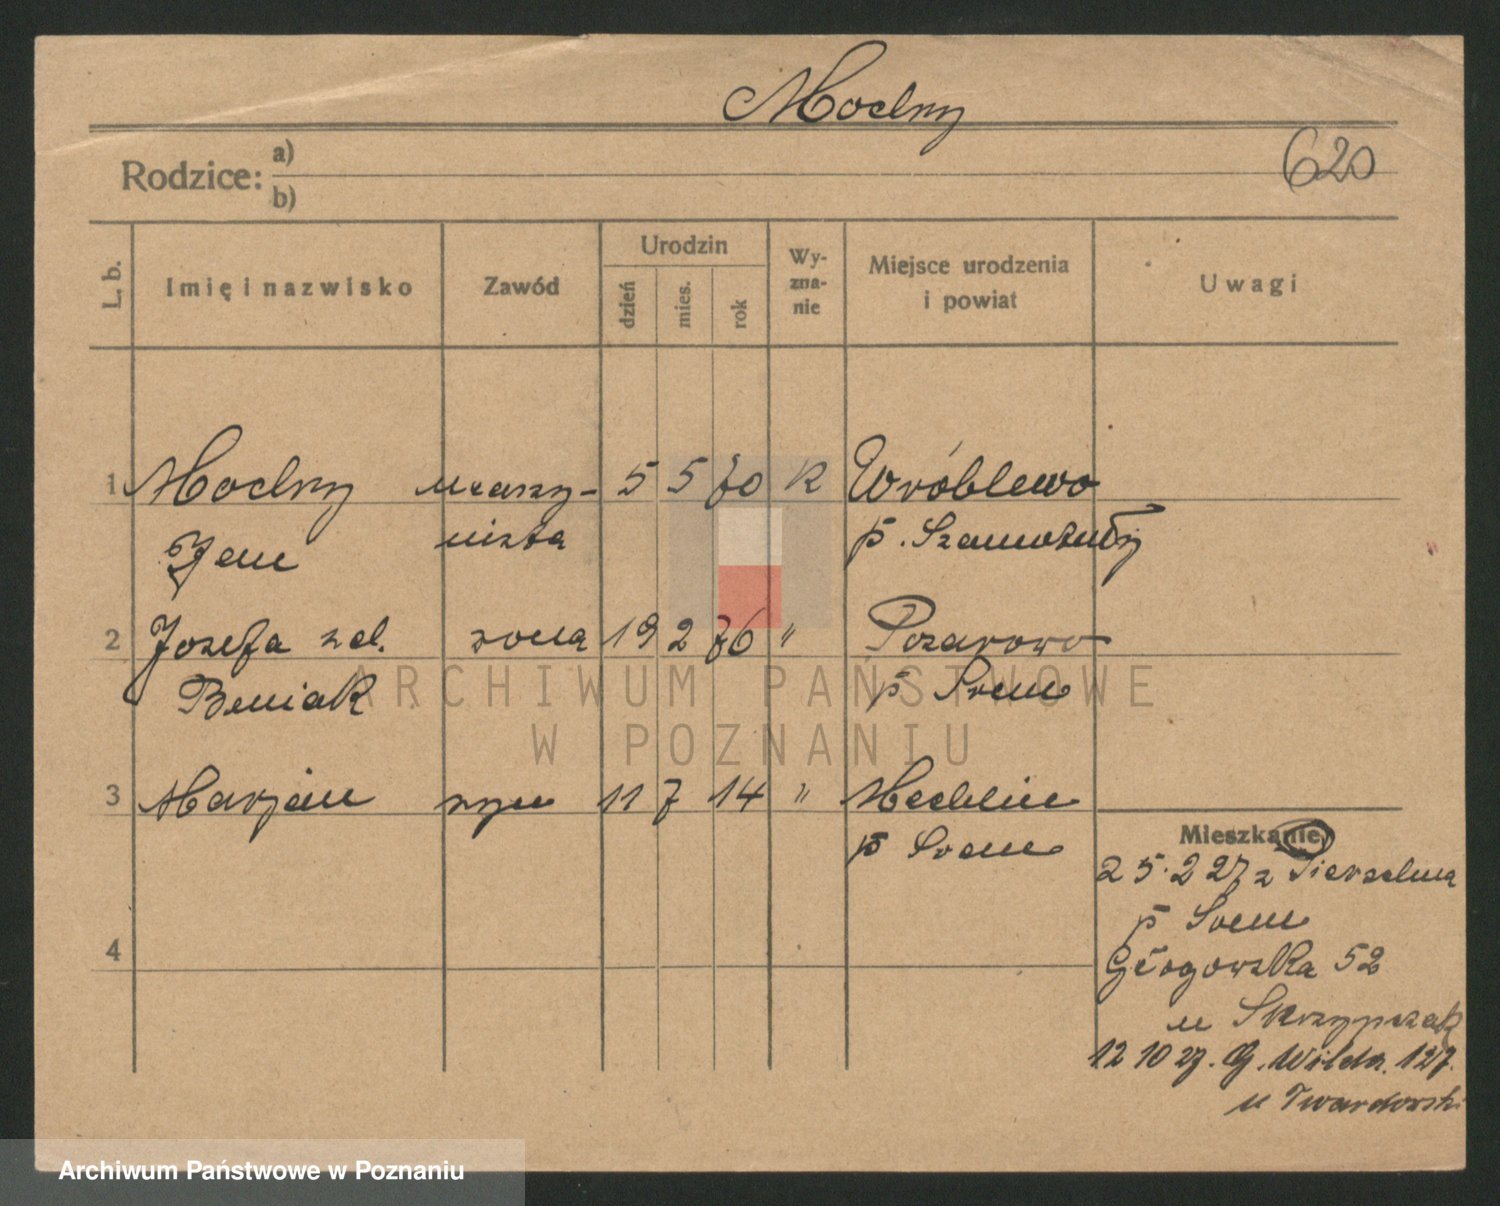 Modny
620
Rodzice: a)
b)
L. b.
Imię i nazwisko
Zawód
Urodzin
dzień
mies.
rok
Wy-
zna-
nie
Miejsce urodzenia
i powiat
Uwagi
1 Modny maszy- 5 5 70 k Wróblewo
Jan nista p. Szamotuły
2 Josefa zd. zona 19 2 76 " Pozarowo
Beniak p Srem
3 Marjan syn 11 7 14 " Mechlin
p Srem
Mieszkanie
25.2 27 z
p Srem
Głogowska 52
u Skrzypczak
12 10 27. G. Wilda. 127.
u Twardowski
4
ARCHIWUM PAŃSTWOWE
W POZNANIU
Archiwum Państwowe w Poznaniu